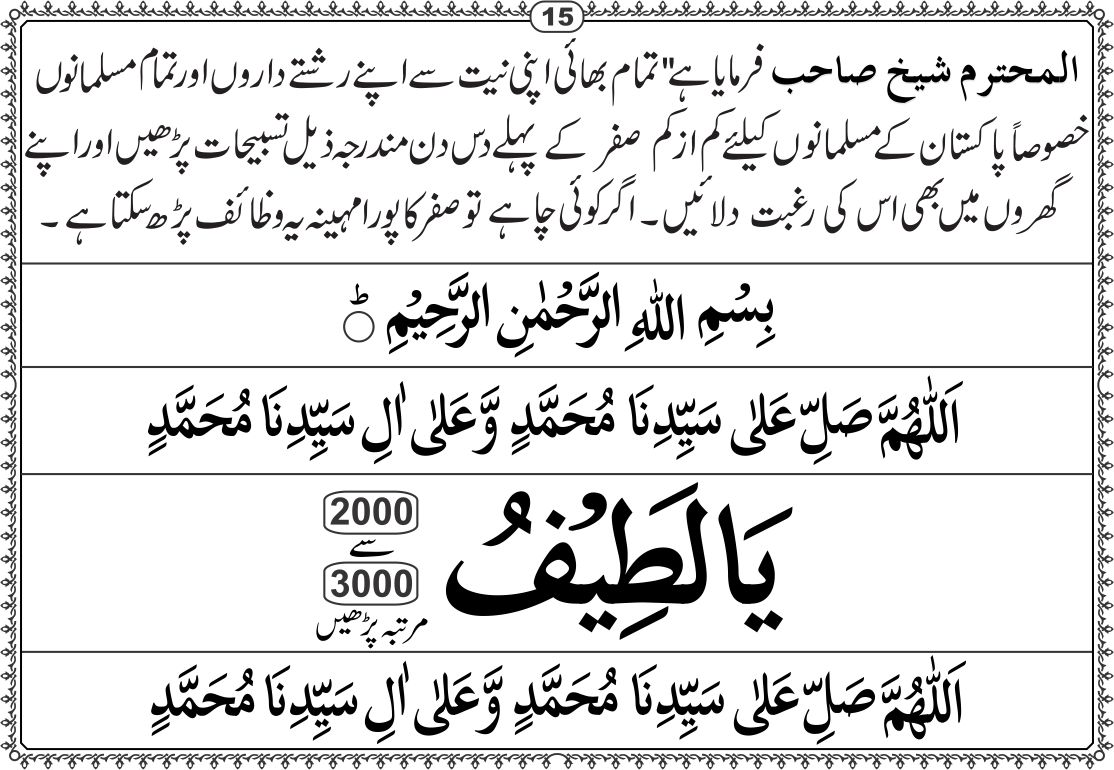 15
المحترم شیخ صاحب فرمایا ہے"تمام بھائی اپنی نیت سے اپنے رشتے داروں اور تمام مسلمانوں
خصوصاً پاکستان کے مسلمانوں کیلئے کم از کم صفر کے پہلے دس دن مندرجہ ذیل تسبیحات پڑھیں اور اپنے
گھروں میں بھی اس کی رغبت دلائیں۔ اگر کوئی چاہے تو صفر کا پورا مہینہ یہ وظائف پڑھ سکتا ہے ۔
بِسْمِ اللّٰهِ الرَّحْمٰنِ الرَّحِيْمِ ۝ؕ
اَللّٰهُمَّ صَلِّ عَلٰى سَيِّدِنَا مُحَمَّدٍ وَّعَلٰى اٰلِ سَيِّدِنَا مُحَمَّدٍ
يَا لَطِيْفُ
2000
سے
3000
مرتبہ پڑھیں
اَللّٰهُمَّ صَلِّ عَلٰى سَيِّدِنَا مُحَمَّدٍ وَّعَلٰى اٰلِ سَيِّدِنَا مُحَمَّدٍ